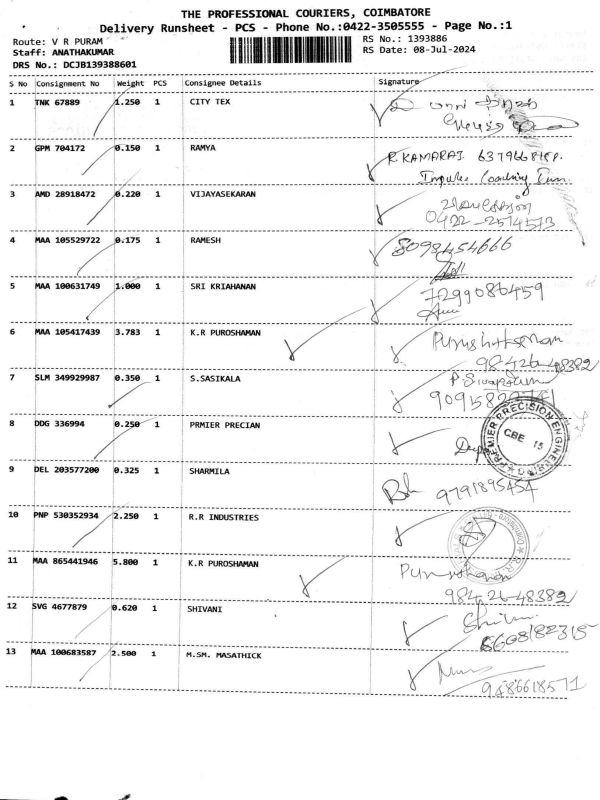 THE PROFESSIONAL COURIERS, COIMBATORE
Delivery Runsheet - PCS - Phone No.:0422-3505555 - Page No.:1
Route: V R PURAM
RS No.: 1393886
Staff: ANATHAKUMAR
RS Date: 08-Jul-2024
DRS No.: DCJB139388601
S No Consignment No Weight PCS Consignee Details Signature
1 TNK 67889 1.250 1 CITY TEX
2 GPM 704172 0.150 1 RAMYA R.KAMARAJ
3 AMD 28918472 0.220 1 VIJAYASEKARAN
0422-2574573
4 MAA 105529722 0.175 1 RAMESH 8098454666
5 MAA 100631749 1.000 1 SRI KRIAHANAN 7299086459
6 MAA 105417439 3.783 1 K.R PUROSHAMAN Purushothaman
98426-48382
7 SLM 349929987 0.350 1 S.SASIKALA
8 DDG 336994 0.250 1 PRMIER PRECIAN
PREMIER PRECISION ENGINEERING
CBE 15
9 DEL 203577200 0.325 1 SHARMILA 9791895454
10 PNP 530352934 2.250 1 R.R INDUSTRIES
11 MAA 865441946 5.800 1 K.R PUROSHAMAN
98426-48382
12 SVG 4677879 0.620 1 SHIVANI
6608182315
13 MAA 100683587 2.500 1 M.SM. MASATHICK
9486618571